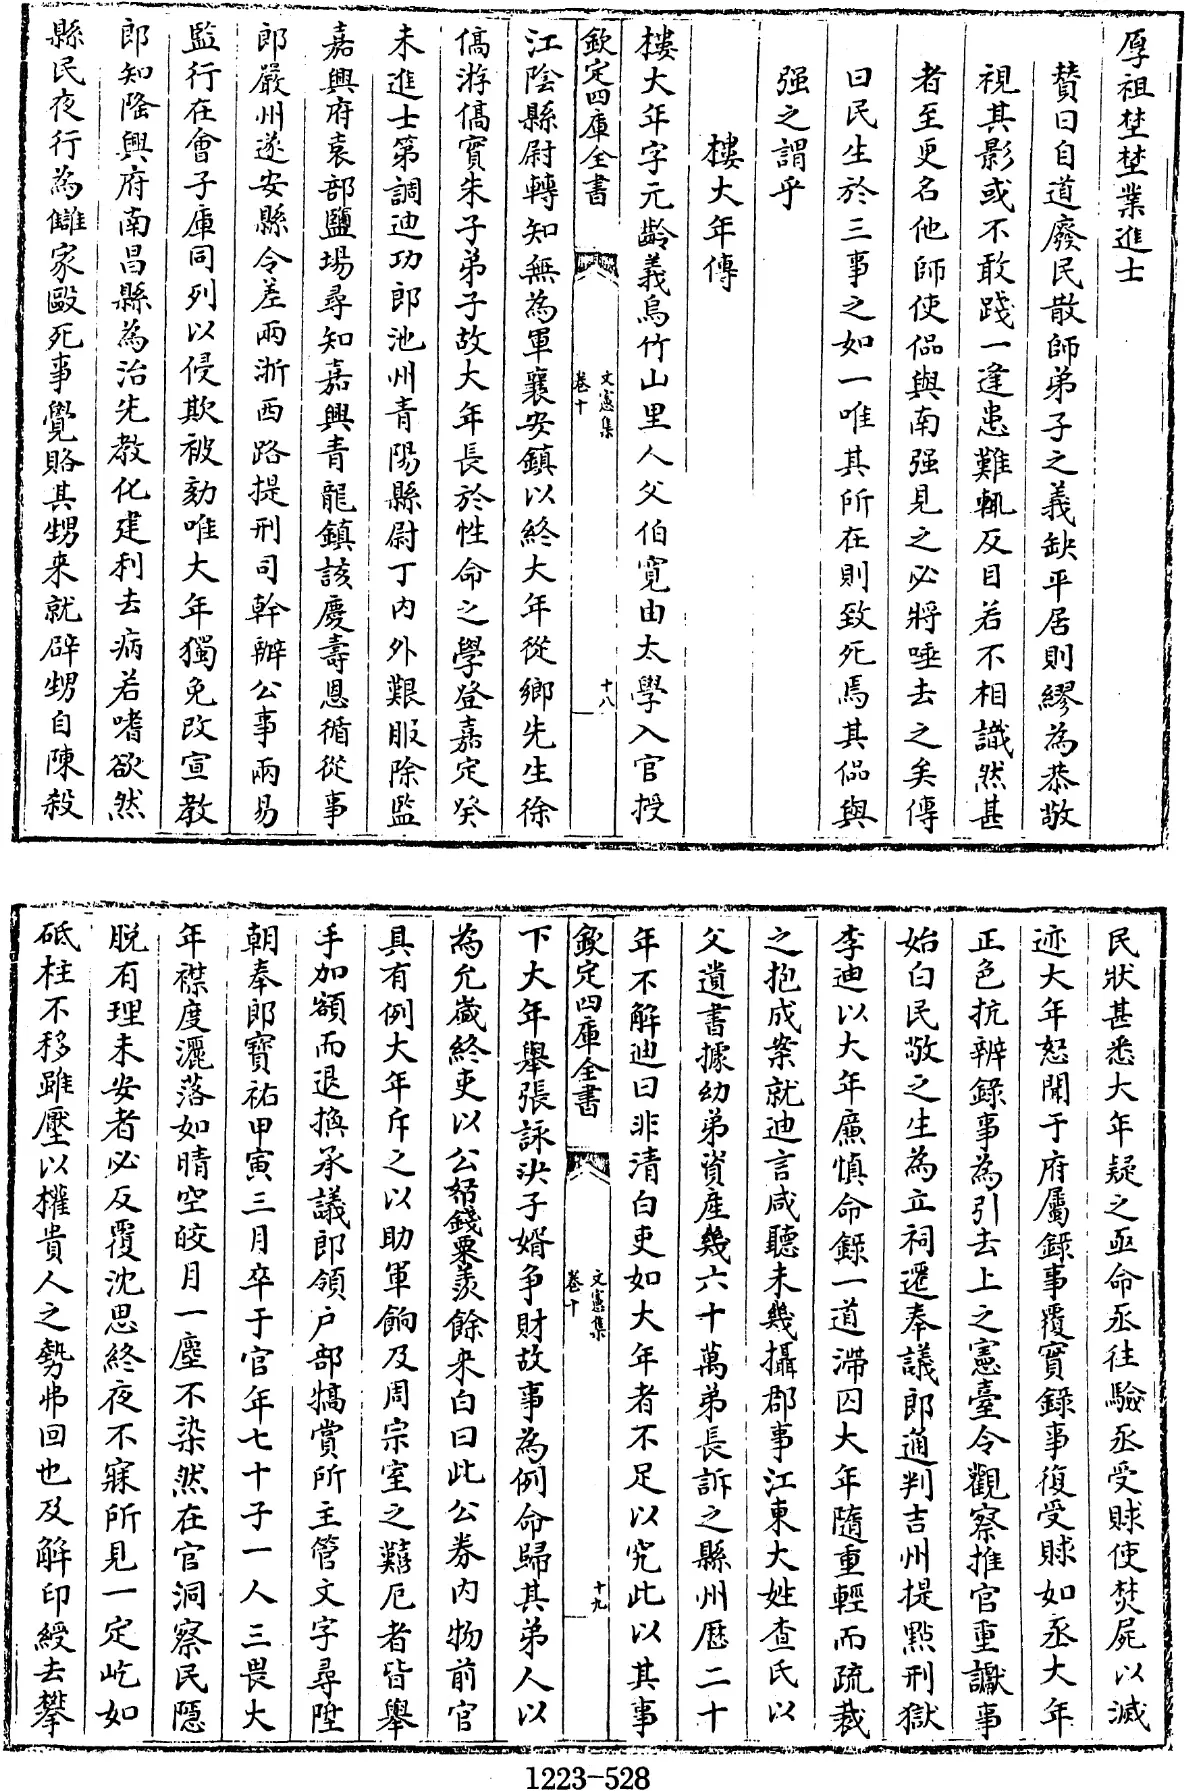 厚祖埜埜業進士
賛曰自道廢民散師弟子之義缺平居則繆為恭敬
視其影或不敢踐一逢患難輒反目若不相識然甚
者至更名他師使侣與南强見之必將唾去之矣傳
曰民生於三事之如一唯其所在則致死焉其侣與
强之謂乎
樓大年傳
樓大年字元齡義烏竹山里人父伯寛由太學入官授
欽定四庫全書
文憲集
卷十
十八
江陰縣尉轉知無為軍襄安鎮以終大年從鄉先生徐
僑游僑實朱子弟子故大年長於性命之學登嘉定癸
未進士第調迪功郎池州青陽縣尉丁内外艱服除監
嘉興府袁部鹽場尋知嘉興青龍鎮該慶壽恩循從事
郎嚴州遂安縣令差兩浙西路提刑司幹辦公事兩易
監行在會子庫同列以侵欺被劾唯大年獨免改宣教
郎知隆興府南昌縣為治先教化建利去病若嗜欲然
縣民夜行為讎家毆死事覺賂其甥来就辟甥自陳殺
民狀甚悉大年疑之亟命丞往驗丞受賕使焚屍以滅
迹大年怒聞于府屬錄事覆實錄事復受賕如丞大年
正色抗辨錄事為引去上之憲臺令觀察推官重讞事
始白民敬之生為立祠遷奉議郎通判吉州提點刑獄
李迪以大年亷慎命錄一道滯囚大年隨重輕而疏裁
之抱成案就迪言咸聽未幾攝郡事江東大姓查氏以
父遺書據幼弟資産幾六十萬弟長訴之縣州歴二十
年不解迪曰非清白吏如大年者不足以究此以其事
欽定四庫全書
文憲集
卷十
十九
下大年舉張詠決子婿爭財故事為例命歸其弟人以
為允歲終吏以公帑錢粟羨餘来白曰此公券内物前官
具有例大年斥之以助軍餉及周宗室之囏厄者皆舉
手加額而退換承議郎領户部犒賞所主管文字尋陞
朝奉郎寶祐甲寅三月卒于官年七十子一人三畏大
年襟度灑落如晴空皎月一塵不染然在官洞察民隱
脱有理未安者必反覆沈思終夜不寐所見一定屹如
砥柱不移雖壓以權貴人之勢弗回也及解印綬去攀
1223-528